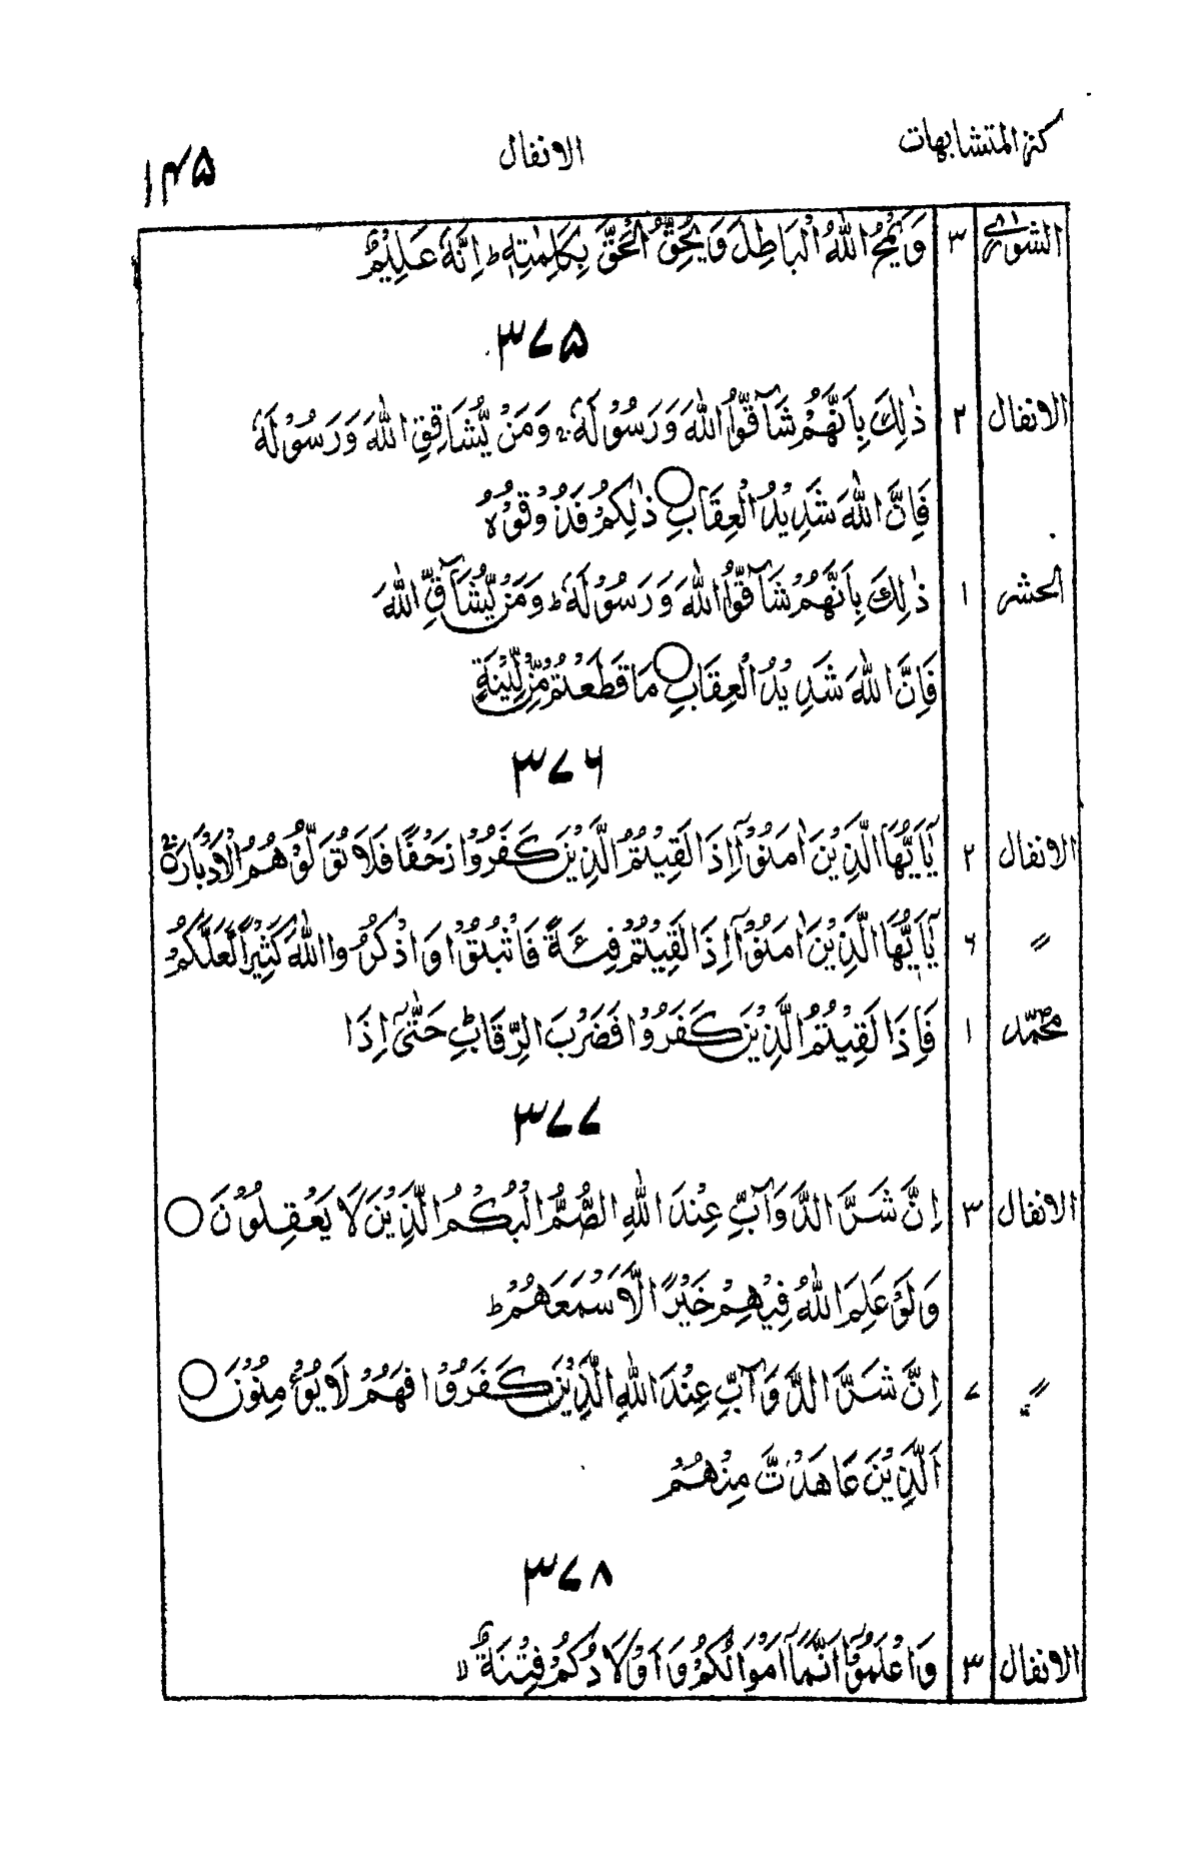 كنز المتشابهات الانفال ۱۴۵
الشورٰى ۳ وَيَمْحُ اللّٰهُ الْبَاطِلَ وَيُحِقُّ الْحَقَّ بِكَلِمٰتِهٖ ط اِنَّهٗ عَلِيْمٌۢ
۳۷۵
الانفال ۲ ذٰلِكَ بِاَنَّهُمْ شَآقُّوا اللّٰهَ وَرَسُوْلَهٗ ج وَمَنْ يُّشَاقِقِ اللّٰهَ وَرَسُوْلَهٗ
فَاِنَّ اللّٰهَ شَدِيْدُ الْعِقَابِ ○ ذٰلِكُمْ فَذُوْقُوْهُ
الحشر ۱ ذٰلِكَ بِاَنَّهُمْ شَآقُّوا اللّٰهَ وَرَسُوْلَهٗ ط وَمَنْ يُّشَآقِّ اللّٰهَ
فَاِنَّ اللّٰهَ شَدِيْدُ الْعِقَابِ ○ مَا قَطَعْتُمْ مِّنْ لِّيْنَةٍ
۳۷۶
الانفال ۲ يٰٓاَيُّهَا الَّذِيْنَ اٰمَنُوْٓا اِذَا لَقِيْتُمُ الَّذِيْنَ كَفَرُوْا زَحْفًا فَلَا تُوَلُّوْهُمُ الْاَدْبَارَ
〃 ۶ يٰٓاَيُّهَا الَّذِيْنَ اٰمَنُوْٓا اِذَا لَقِيْتُمْ فِئَةً فَاثْبُتُوْا وَاذْكُرُوا اللّٰهَ كَثِيْرًا لَّعَلَّكُمْ
محمّد ۱ فَاِذَا لَقِيْتُمُ الَّذِيْنَ كَفَرُوْا فَضَرْبَ الرِّقَابِ ط حَتّٰىٓ اِذَا
۳۷۷
الانفال ۳ اِنَّ شَرَّ الدَّوَآبِّ عِنْدَ اللّٰهِ الصُّمُّ الْبُكْمُ الَّذِيْنَ لَا يَعْقِلُوْنَ ○
وَلَوْ عَلِمَ اللّٰهُ فِيْهِمْ خَيْرًا لَّاَسْمَعَهُمْ ط
〃 ۷ اِنَّ شَرَّ الدَّوَآبِّ عِنْدَ اللّٰهِ الَّذِيْنَ كَفَرُوْا فَهُمْ لَا يُؤْمِنُوْنَ ○
اَلَّذِيْنَ عَاهَدْتَّ مِنْهُمْ
۳۷۸
الانفال ۳ وَاعْلَمُوْٓا اَنَّمَآ اَمْوَالُكُمْ وَاَوْلَادُكُمْ فِتْنَةٌ لا